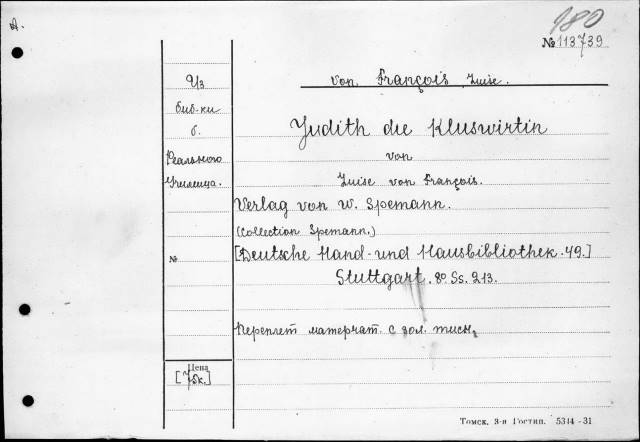 A.
180
№ 113739
von François Luise.
Из
биб-ки
б.
Реального
Училища.
Judith die Kluswirtin
von
Luise von François.
Verlag von W. Spemann.
(Collection Spemann.)
№
[Deutsche Hand- und Hausbibliothek. 49.]
Stuttgart. 8° Ss. 213.
Переплет матерчат. с зол. тисн.
Цена
Томск. 3-я Гостип. 5314-31